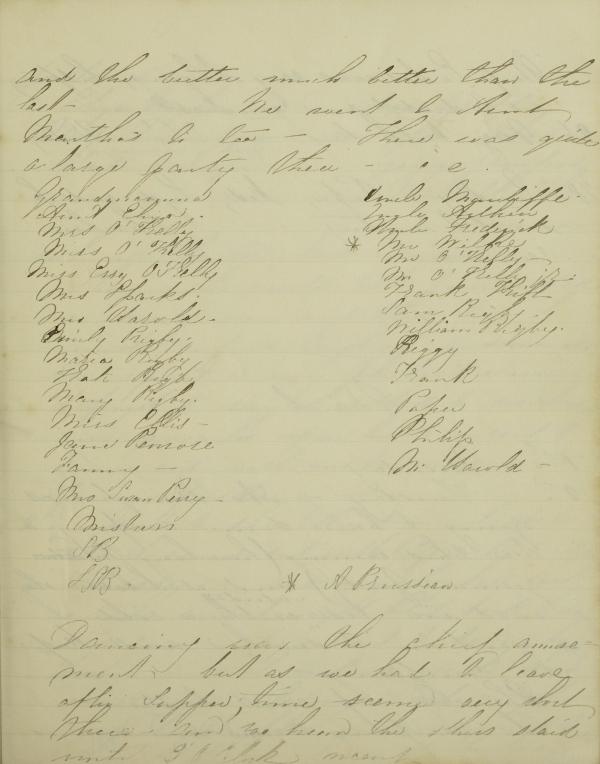 and the butter much better than the
last— We went to Aunt
Martha's to tea — There was quite
a large party there — i.e.
Grandmamma
Aunt
Mrs O'Kelly
Miss O'Kelly
Miss Essy O'Kelly
Mrs Sparks.
Mrs Harold.
Emily Rigby.
Maria Rigby
Rigby
Mary Rigby.
Miss Ellis—
Jane Penrose
Fanny —
Mrs Swan Perry—
SB
LSB.
Uncle
Uncle Arthur
Uncle Frederick
* Mr
Mr O'Kelly—
Mr O'Kelly jr.
Frank
Sam Rigby
William Rigby.
Biggy
Frank
Philip
Mr Harold —
* A Prussian
Dancing was the chief amuse-
ment but as we had to leave
after Supper, time seems very short
there and we hear the others staid
until